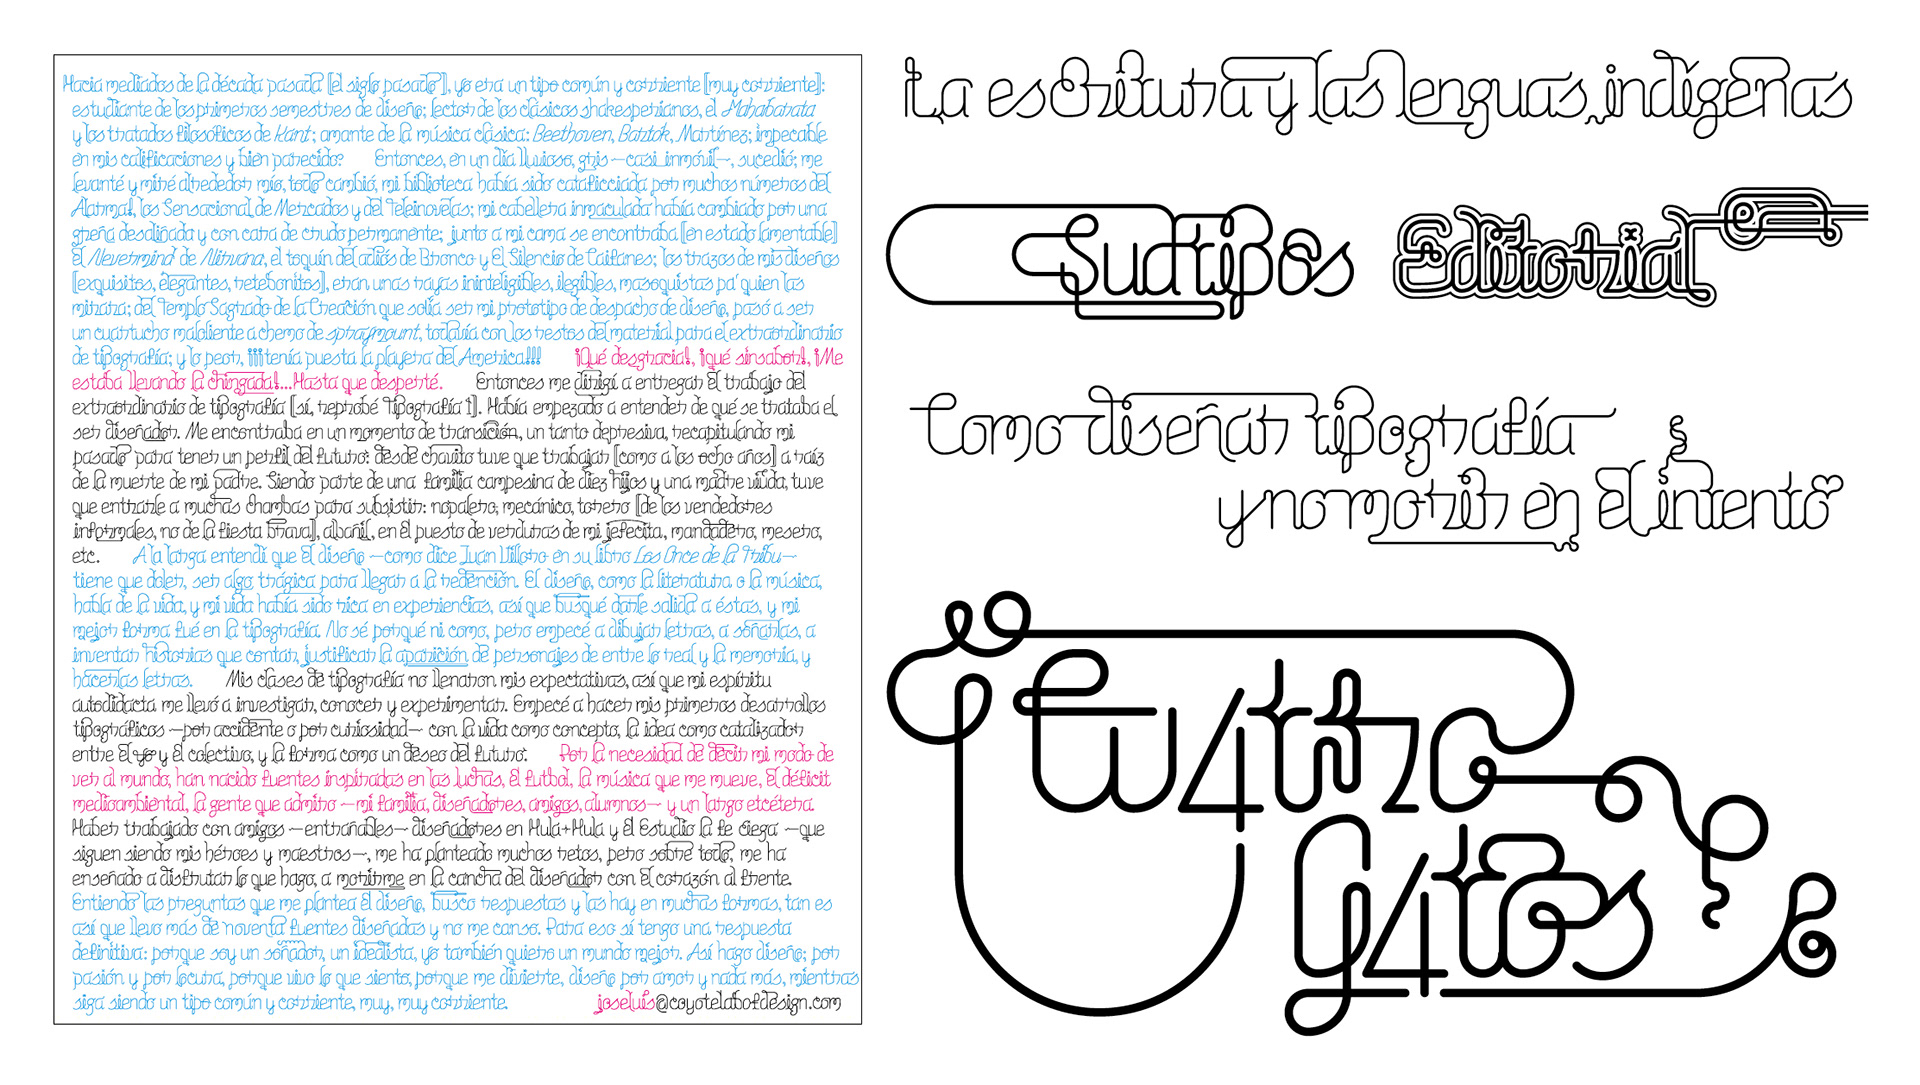 Hacia mediados de la década pasada [el siglo pasado], yo era un tipo común y corriente [muy corriente]:
estudiante de los primeros semestres de diseño; lector de los clásicos shakesperianos, el Mahabarata
y los tratados filosóficos de Kant; amante de la música clásica: Beethoven, Bartók, Martínez; impecable
en mis calificaciones y bien parecido? Entonces, en un día lluvioso, gris —casi inmóvil—, sucedió; me
levanté y miré alrededor mío, todo cambió, mi biblioteca había sido catafixiada por muchos números del
Alarma!, los Sensacional de Mercados y del Teleinovelas; mi cabellera inmaculada había cambiado por una
greña desaliñada y con cara de crudo permanente; junto a mi cama se encontraba [en estado lamentable]
El Nevermind de Nirvana, el toquín del adiós de Bronco y El Silencio de Caifanes; los trazos de mis diseños
[exquisitos, elegantes, retebonitos], eran unas rayas ininteligibles, ilegibles, masoquistas pa' quien las
mirara; del Templo Sagrado de la Creación que solía ser mi prototipo de despacho de diseño, pasó a ser
un cuartucho maloliente a chemo de spraymount, todavía con los restos del material para el extraordinario
de tipografía; y lo peor, ¡¡¡tenía puesta la playera del America!!! ¡Qué desgracia!, ¡qué sinsabor!, ¡Me
estaba llevando la chingada!...Hasta que desperté. Entonces me dirigí a entregar el trabajo del
extraordinario de tipografía [sí, reprobé Tipografía 1]. Había empezado a entender de qué se trataba el
ser diseñador. Me encontraba en un momento de transición, un tanto depresiva, recapitulando mi
pasado para tener un perfil del futuro: desde chavito tuve que trabajar [como a los ocho años] a raíz
de la muerte de mi padre. Siendo parte de una familia campesina de diez hijos y una madre viuda, tuve
que entrarle a muchas chambas para subsistir: nopalero, mecánico, torero [de los vendedores
informales, no de la fiesta brava], albañil, en el puesto de verduras de mi jefecita, mandadero, mesero,
etc. A la larga entendí que El diseño —como dice Juan Villoro en su libro Los Once de la Tribu—
tiene que doler, ser algo trágica para llegar a la redención. El diseño, como la literatura o la música,
habla de la vida, y mi vida había sido rica en experiencias, así que busqué darle salida a éstas, y mi
mejor forma fué en la tipografía. No sé porqué ni como, pero empecé a dibujar letras, a soñarlas, a
inventar historias que contar, justificar la aparición de personajes de entre lo real y la memoria, y
hacerlas letras. Mis clases de tipografía no llenaron mis expectativas, así que mi espíritu
autodidacta me llevó a investigar, conocer y experimentar. Empecé a hacer mis primeros desarrollos
tipográficos —por accidente o por curiosidad— con la vida como concepto, la idea como catalizador
entre El yo y él colectivo, y la forma como un deseo del futuro. Por la necesidad de decir mi modo de
ver al mundo, han nacido fuentes inspiradas en las luchas, El futbol, la música que me mueve, El déficit
medioambiental, la gente que admiro —mi familia, diseñadores, amigos, alumnos— y un largo etcétera.
Haber trabajado con amigos —entrañables— diseñadores en Hula+Hula y él Estudio la fe Ciega —que
siguen siendo mis héroes y maestros—, me ha planteado muchos retos, pero sobre todo, me ha
enseñado a disfrutar lo que hago, a morirme en la cancha del diseñador con El corazón al frente.
Entiendo las preguntas que me plantea El diseño, busco respuestas y las hay en muchas formas, tan es
así que llevo más de noventa fuentes diseñadas y no me canso. Para eso sí tengo una respuesta
definitiva: porque soy un soñador, un idealista, yo también quiero un mundo mejor. Así hago diseño; por
pasión y por locura, porque vivo lo que siento, porque me divierte, diseño por amor y nada más, mientras
siga siendo un tipo común y corriente, muy, muy corriente. joseluis@coyotelabofdesign.com
La escritura y las lenguas indígenas
Sudtipos Editorial
Como diseñar tipografía
y no morir en El intento
Cu4tro
G4tos